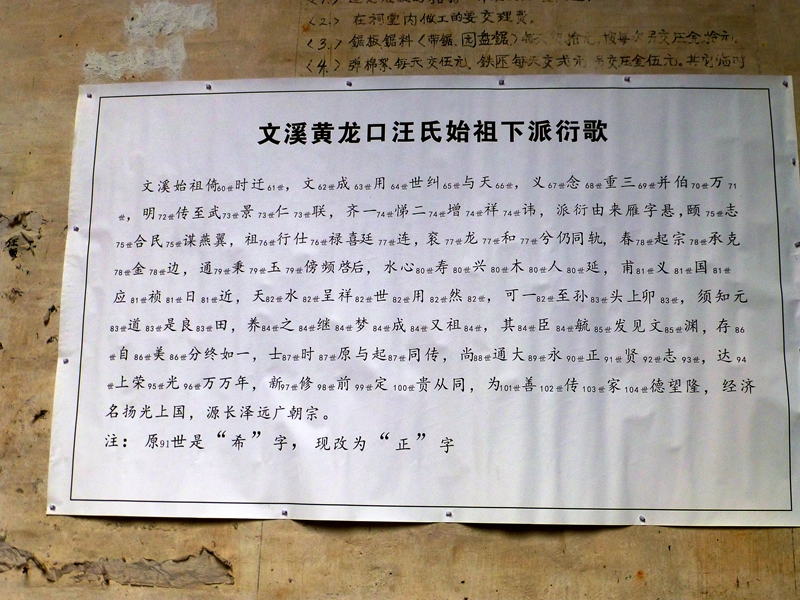 〈2.〉在祠堂内做工的要交理费。
〈3.〉锯板锯料(带锯、园盘锯)每天 拾元,
〈4.〉弹棉絮每天交伍元、铁匠每天交弍元 另交压金伍元。其它临时
文溪黄龙口汪氏始祖下派衍歌
文溪始祖倚60世时迁61世,文62世成63世用64世世纠65世与天66世,义67世念68世重三69世并伯70世万71
世,明72世传至武73世景73世仁73世联,齐一74世悌二74世增74世祥74世讳,派衍由来雁字悬,颐75世志
75世合民75世谋燕翼,祖76世行仕76世禄喜廷77世连,衮77世龙77世和77世兮仍同轨,春78世起宗78世承克
78世金78世边,通79世秉79世玉79世傍频啓后,水心80世寿80世兴80世木80世人80世延,甫81世义81世国81世
应81世祯81世日81世近,天82世水82世呈祥82世世82世用82世然82世,可一82世至孙83世头上卯83世,须知元
83世道83世是良83世田,养84世之84世继84世梦84世成84世又祖84世,其84世臣84世毓85世发见文85世渊,存86
世自86世美86世分终如一,士87世时87世原与起87世同传,尚88世通大89世永90世正91世贤92世志93世,达94
世上荣95世光96世万万年,新97世修98世前99世定100世贵从同,为101世善102世传103世家104世德望隆,经济
名扬光上国,源长泽远广朝宗。
注:原91世是“希”字,现改为“正”字